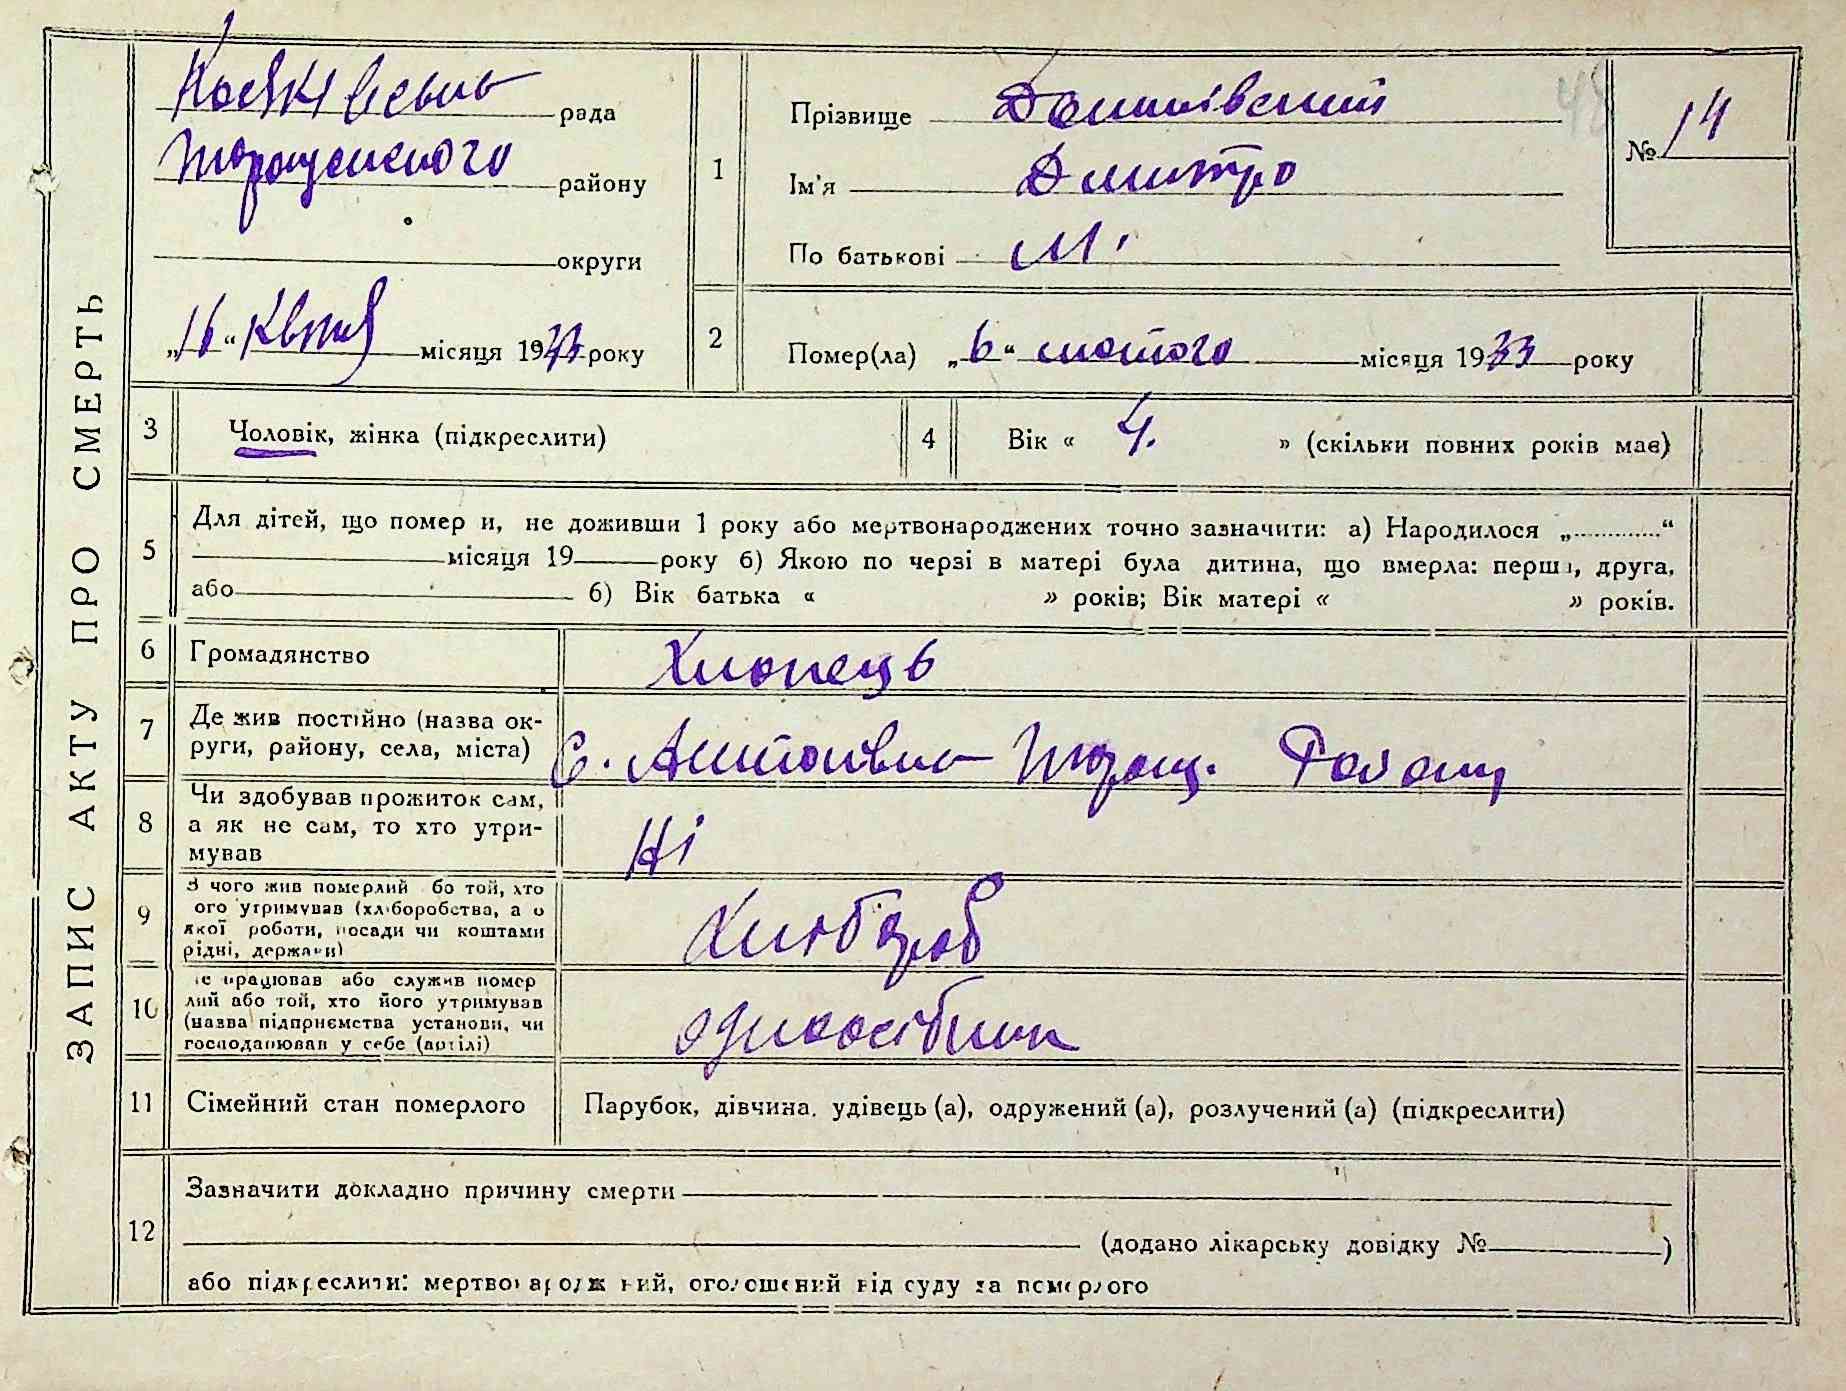 ЗАПИС АКТУ ПРО СМЕРТЬ
рада
району
округи
„16“ місяця 1933 року
1
Прізвище
Ім'я Дмитро
По батькові М.
№ 14
2
Помер(ла) „6“ лютого місяця 1933 року
3
Чоловік, жінка (підкреслити)
4
Вік « 4. » (скільки повних років має)
5
Для дітей, що помер и, не доживши 1 року або мертвонароджених точно зазначити: а) Народилося „............“
місяця 19 року б) Якою по черзі в матері була дитина, що вмерла: перша, друга,
або б) Вік батька « » років; Вік матері « » років.
6
Громадянство
Хлопець
7
Де жив постійно (назва ок-
руги, району, села, міста)
С. Антонівка Таращ. Району
8
Чи здобував прожиток сам,
а як не сам, то хто утри-
мував
Ні
9
З чого жив померлий бо той, хто
ого утримував (хліборобства, а о
якої роботи, посади чи коштами
рідні, держави)
Хлібороб
10
е працював або служив помер
лий або той, хто його утримував
(назва підприємства установи, чи
господарював у себе (артілі)
одноосібник
11
Сімейний стан померлого
Парубок, дівчина, удівець (а), одружений (а), розлучений (а) (підкреслити)
12
Зазначити докладно причину смерти
(додано лікарську довідку № )
або підкреслити: мертвонароджений, оголошений від суду за померлого